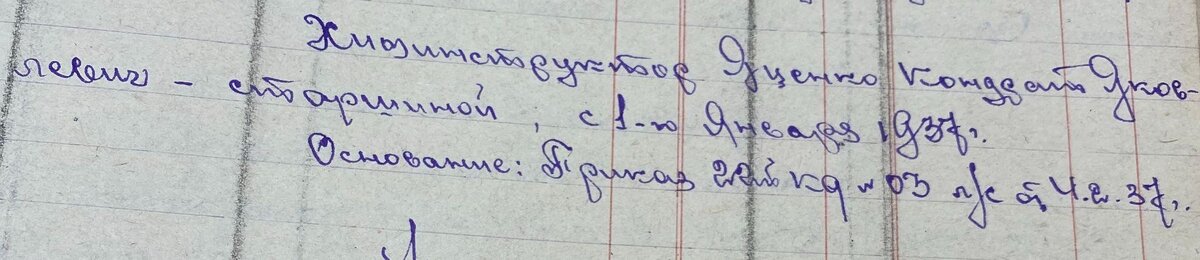 Химинструктор Яценко Кондрат Яков-
левич - старшиной, с 1-го Января 1937г.
Основание: Приказ 22й кд № 03 л/с от 4.2.37г.